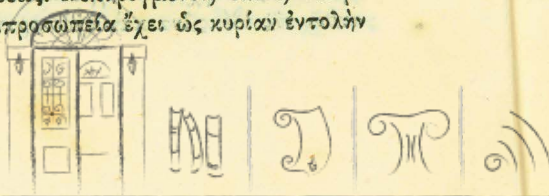 προσωπεία ἔχει ὡς κυρίαν ἐντολὴν